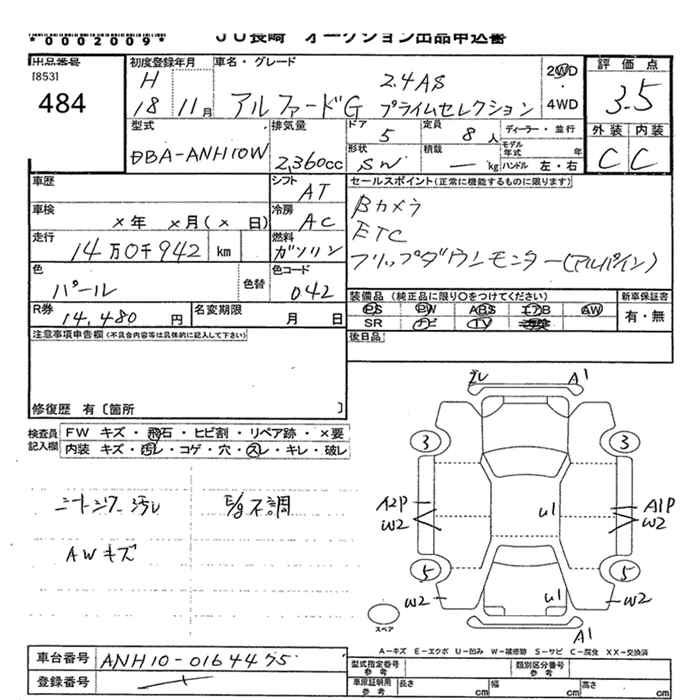 *0002009*
JU長崎 オークション出品申込書
出品番号
[853]
484
初度登録年月
H
18 11月
車名・グレード
2.4AS
アルファードG プライムセレクション
2WD
・
4WD
評価点
3.5
外装 内装
C C
型式
DBA-ANH10W
排気量
2,360cc
ドア
5
定員
8人
形状
SW
積載
― kg
ディーラー・並行
モデル年式 年
ハンドル 左・右
車歴
シフト
AT
車検
×年 ×月(× 日)
冷房
AC
走行
14万0千942 km
燃料
ガソリン
色
パール
色替
色コード
042
R券
14,480 円
名変期限
月 日
セールスポイント(正常に機能するものに限ります)
Bカメラ
ETC
フリップダウンモニター(アルパイン)
装備品(純正品に限り○をつけてください)
PS PW ABS エアB AW
SR ナビ TV
新車保証書
有・無
後日品
注意事項申告欄(不具合内容等は具体的に記入して下さい)
修復歴 有〔箇所 〕
検査員
記入欄
FW キズ・飛石・ヒビ割・リペア跡・×要
内装 キズ・汚レ・コゲ・穴・スレ・キレ・破レ
シートシワ―汚レ
AWキズ
E/g不調
ズレ A1
3 3
A2P
W2
U1
A1P
W2
5 5
W2
U1
W2
A1
スペア
A-キズ E-エクボ U-凹み W-補修跡 S-サビ C-腐食 XX-交換済
車台番号
ANH10-0164475
登録番号
型式指定番号
参考
類別区分番号
参考
車庫証明用
参考
長さ cm
幅 cm
高さ cm